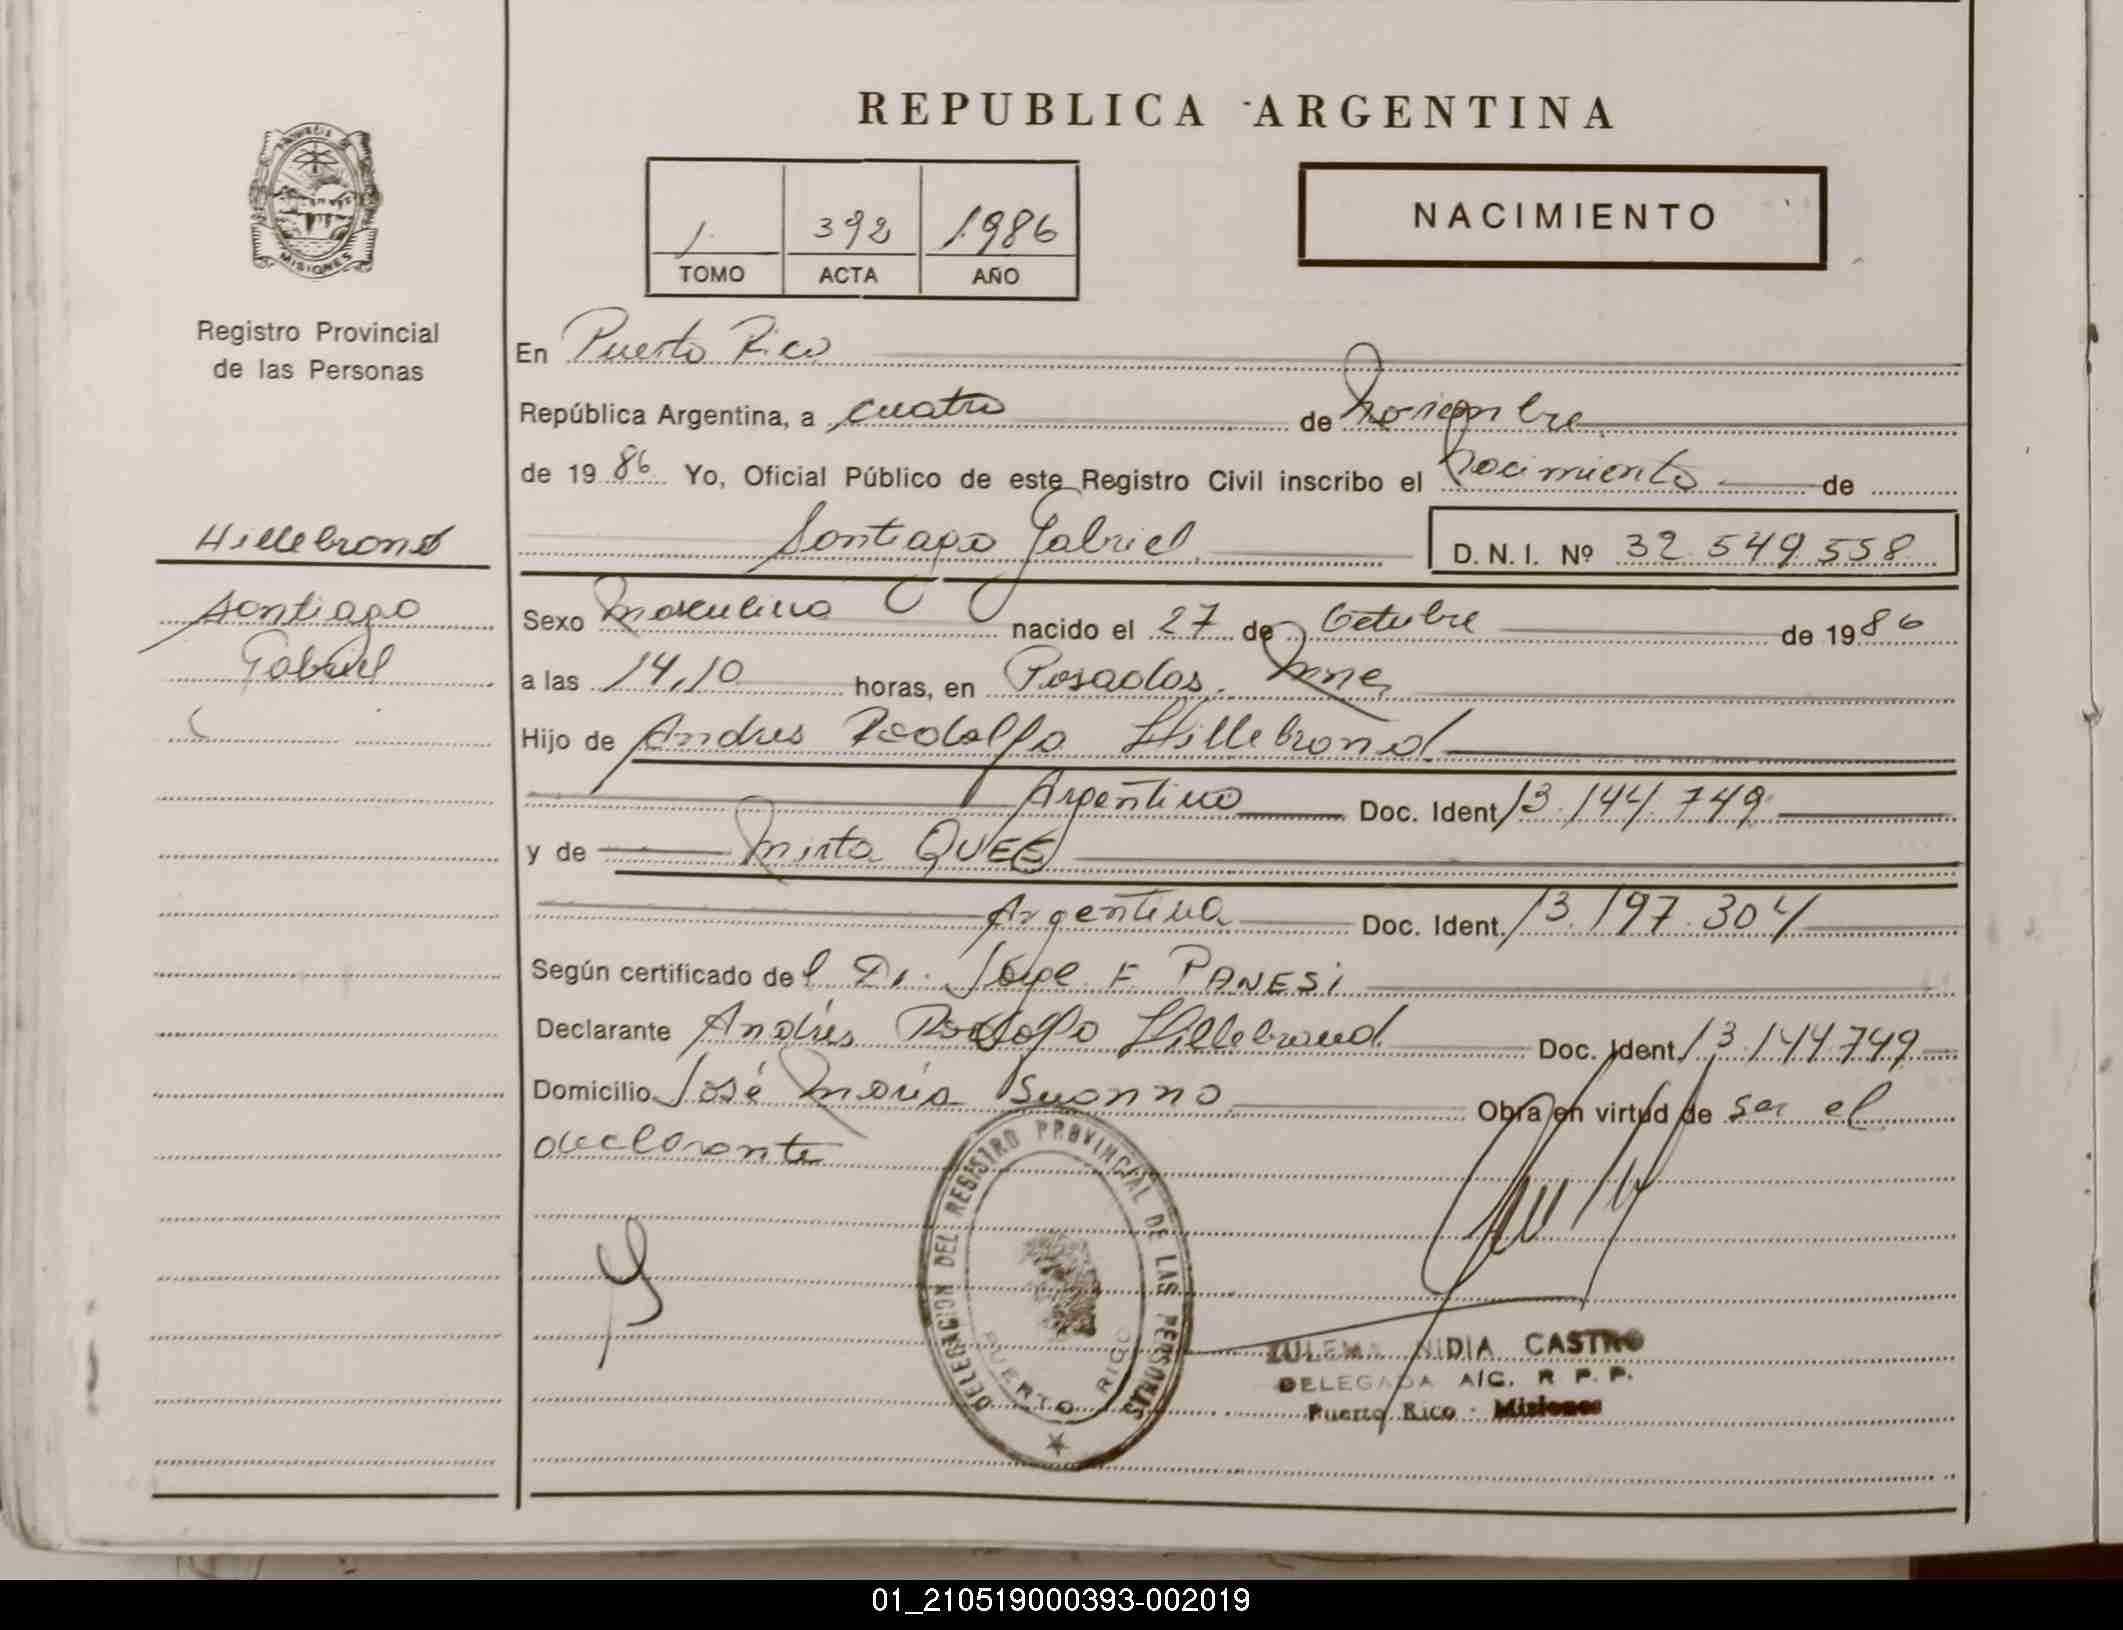 REPUBLICA ARGENTINA
PROVINCIA DE
MISIONES
Registro Provincial
de las Personas
1 392 1986
TOMO ACTA AÑO
NACIMIENTO
En Puerto Rico
República Argentina, a cuatro de noviembre
de 1986 Yo, Oficial Público de este Registro Civil inscribo el nacimiento de
Santiago Gabriel D. N. I. Nº 32.549.558
Hillebrand
Santiago
Gabriel
Sexo masculino nacido el 27 de Octubre de 1986
a las 14,10 horas, en Posadas. Mnes
Hijo de Andres Rodolfo Hillebrand
Argentino Doc. Ident 13.144.749
y de Mirta QUEE
Argentina Doc. Ident. 13.197.304
Según certificado del Dr. Jorge F PANESI
Declarante Andrés Rodolfo Hillebrand Doc. Ident. 13.144.749
Domicilio José María Buonno Obra en virtud de ser el
declarante
DELEGACION DEL REGISTRO PROVINCIAL DE LAS PERSONAS
PUERTO RICO
ZULEMA NIDIA CASTRO
DELEGADA A/C. R P. P.
Puerto Rico - Misiones
01_210519000393-002019